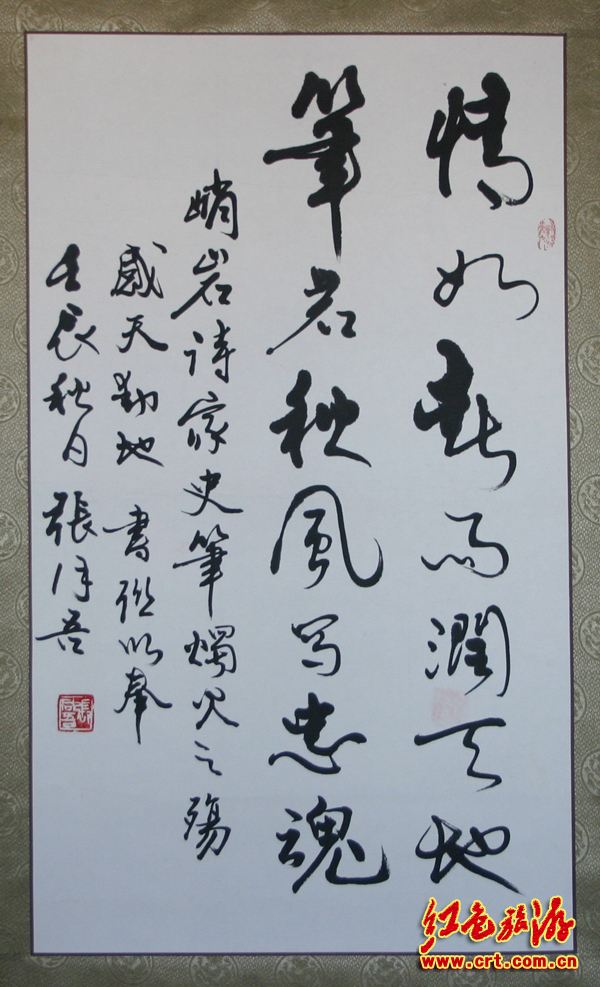 情如春雨潤天地
筆若秋風写忠魂
峭岩诗家史筆燭火之殤
感天動地 書联以奉
壬辰秋日 張同吾
红色旅游
www.crt.com.cn